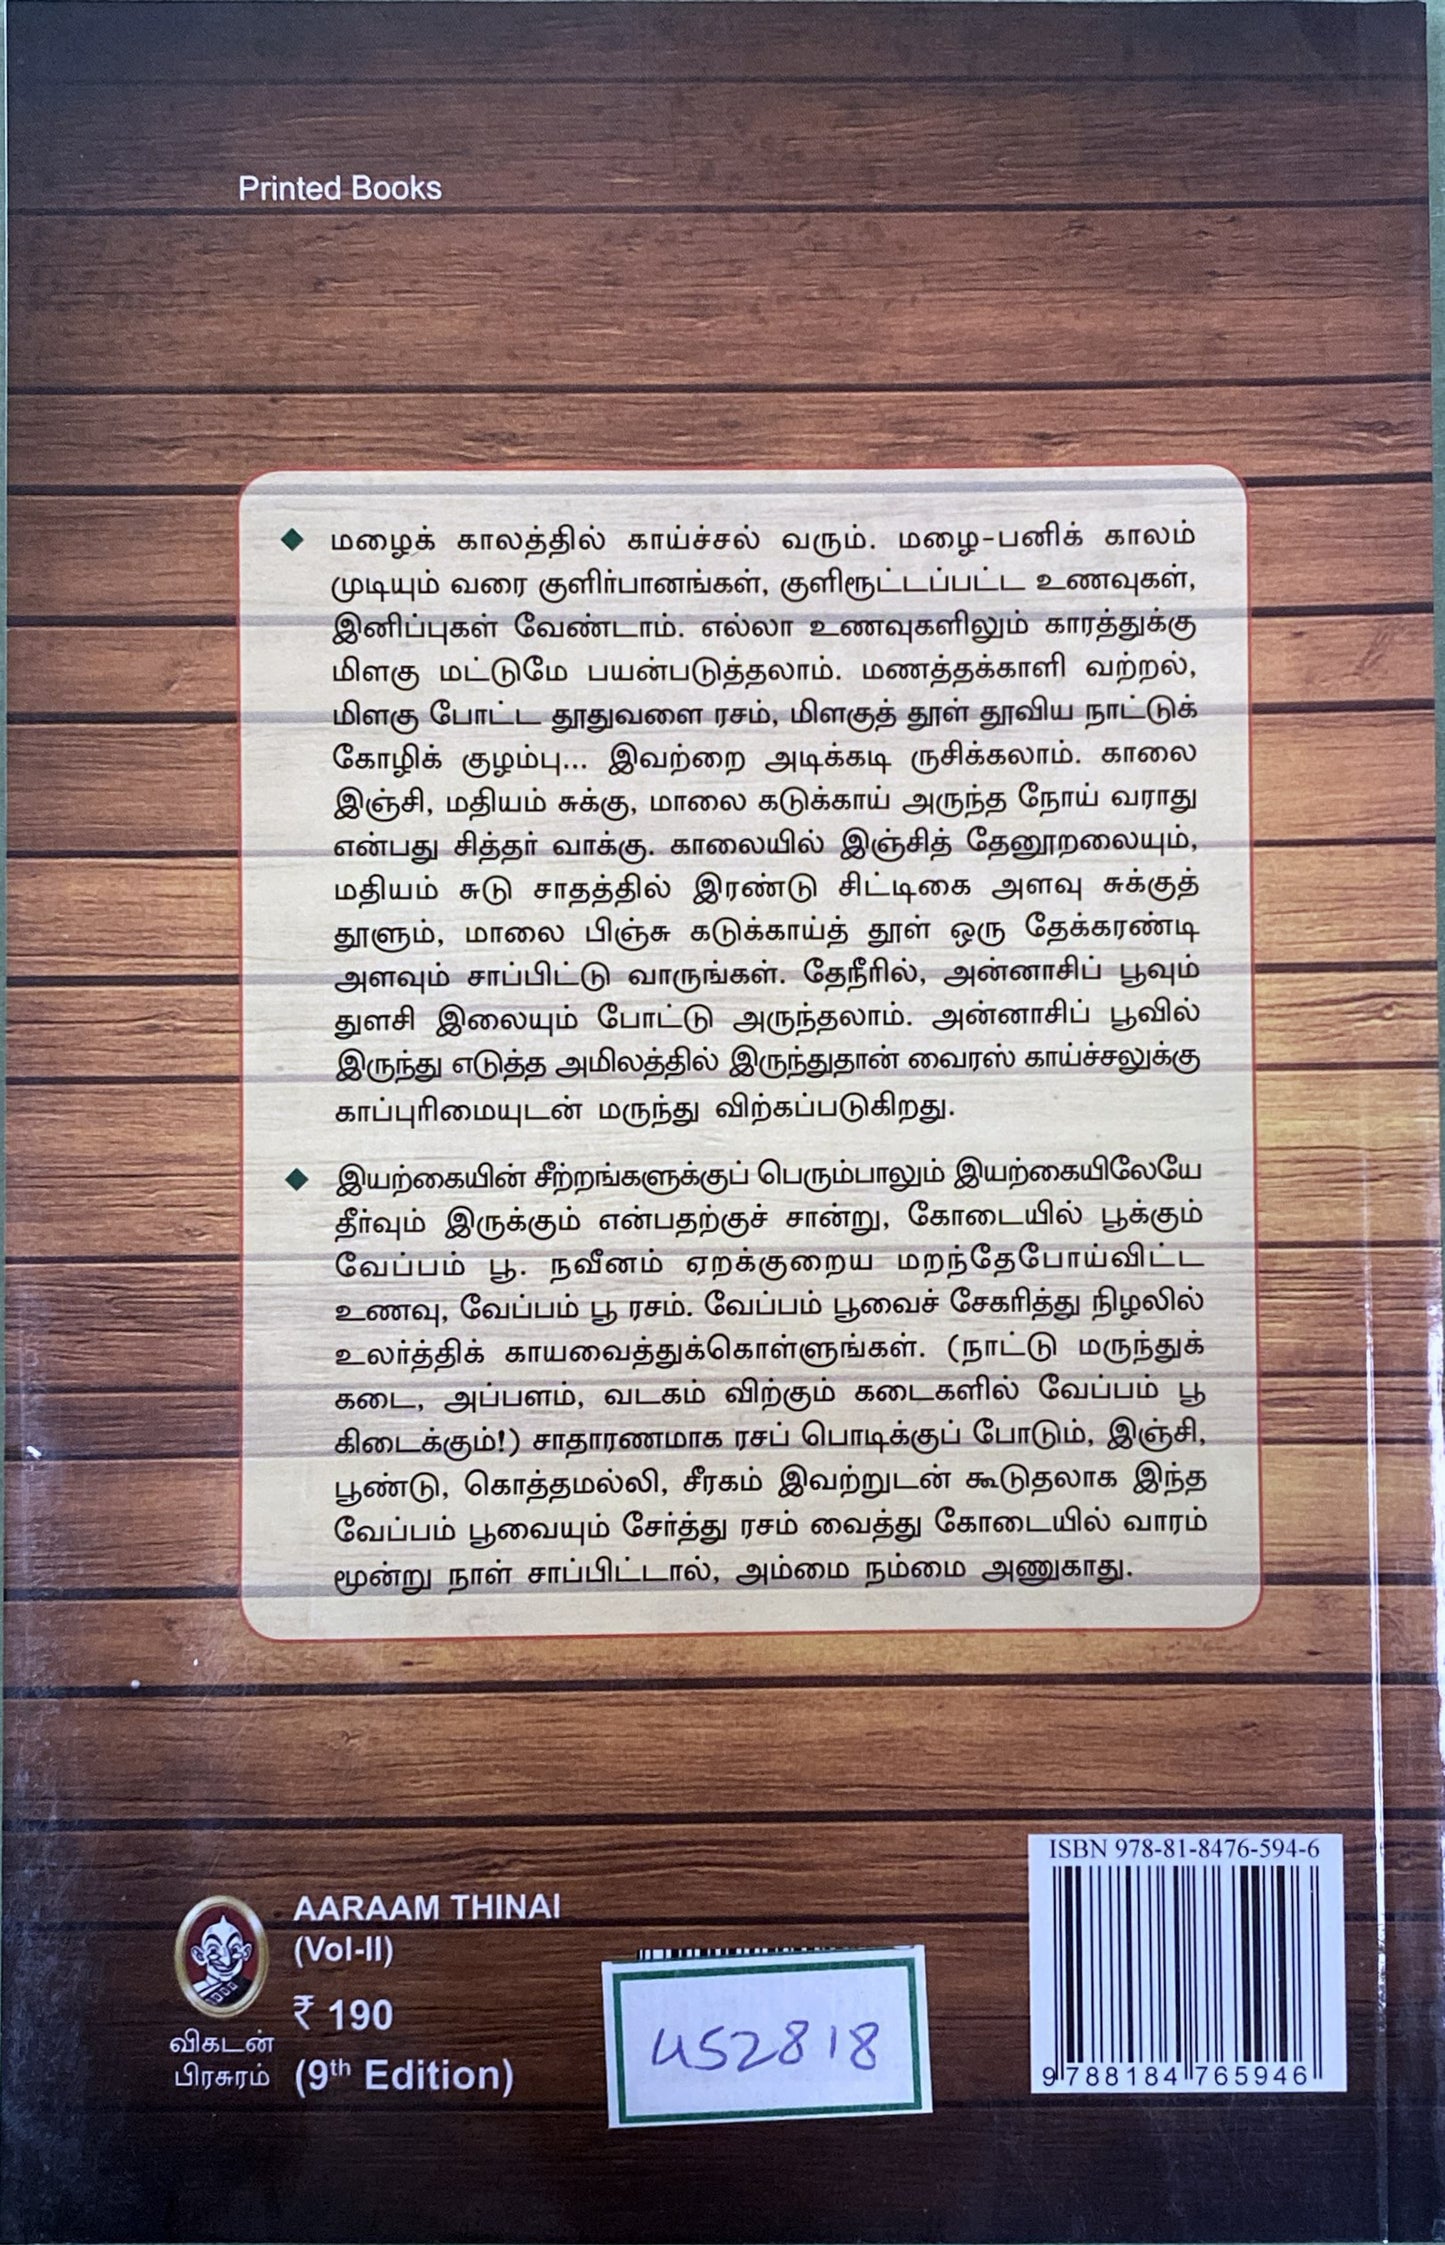 Printed Books
◆ மழைக் காலத்தில் காய்ச்சல் வரும். மழை-பனிக் காலம்
முடியும் வரை குளிர்பானங்கள், குளிரூட்டப்பட்ட உணவுகள்,
இனிப்புகள் வேண்டாம். எல்லா உணவுகளிலும் காரத்துக்கு
மிளகு மட்டுமே பயன்படுத்தலாம். மணத்தக்காளி வற்றல்,
மிளகு போட்ட தூதுவளை ரசம், மிளகுத் தூள் தூவிய நாட்டுக்
கோழிக் குழம்பு... இவற்றை அடிக்கடி ருசிக்கலாம். காலை
இஞ்சி, மதியம் சுக்கு, மாலை கடுக்காய் அருந்த நோய் வராது
என்பது சித்தர் வாக்கு. காலையில் இஞ்சித் தேனூறலையும்,
மதியம் சுடு சாதத்தில் இரண்டு சிட்டிகை அளவு சுக்குத்
தூளும், மாலை பிஞ்சு கடுக்காய்த் தூள் ஒரு தேக்கரண்டி
அளவும் சாப்பிட்டு வாருங்கள். தேநீரில், அன்னாசிப் பூவும்
துளசி இலையும் போட்டு அருந்தலாம். அன்னாசிப் பூவில்
இருந்து எடுத்த அமிலத்தில் இருந்துதான் வைரஸ் காய்ச்சலுக்கு
காப்புரிமையுடன் மருந்து விற்கப்படுகிறது.
◆ இயற்கையின் சீற்றங்களுக்குப் பெரும்பாலும் இயற்கையிலேயே
தீர்வும் இருக்கும் என்பதற்குச் சான்று, கோடையில் பூக்கும்
வேப்பம் பூ. நவீனம் ஏறக்குறைய மறந்தேபோய்விட்ட
உணவு, வேப்பம் பூ ரசம். வேப்பம் பூவைச் சேகரித்து நிழலில்
உலர்த்திக் காயவைத்துக்கொள்ளுங்கள். (நாட்டு மருந்துக்
கடை, அப்பளம், வடகம் விற்கும் கடைகளில் வேப்பம் பூ
கிடைக்கும்!) சாதாரணமாக ரசப் பொடிக்குப் போடும், இஞ்சி,
பூண்டு, கொத்தமல்லி, சீரகம் இவற்றுடன் கூடுதலாக இந்த
வேப்பம் பூவையும் சேர்த்து ரசம் வைத்து கோடையில் வாரம்
மூன்று நாள் சாப்பிட்டால், அம்மை நம்மை அணுகாது.
AARAAM THINAI
(Vol-II)
₹ 190
(9th Edition)
விகடன்
பிரசுரம்
452818
ISBN 978-81-8476-594-6
9 788184 765946